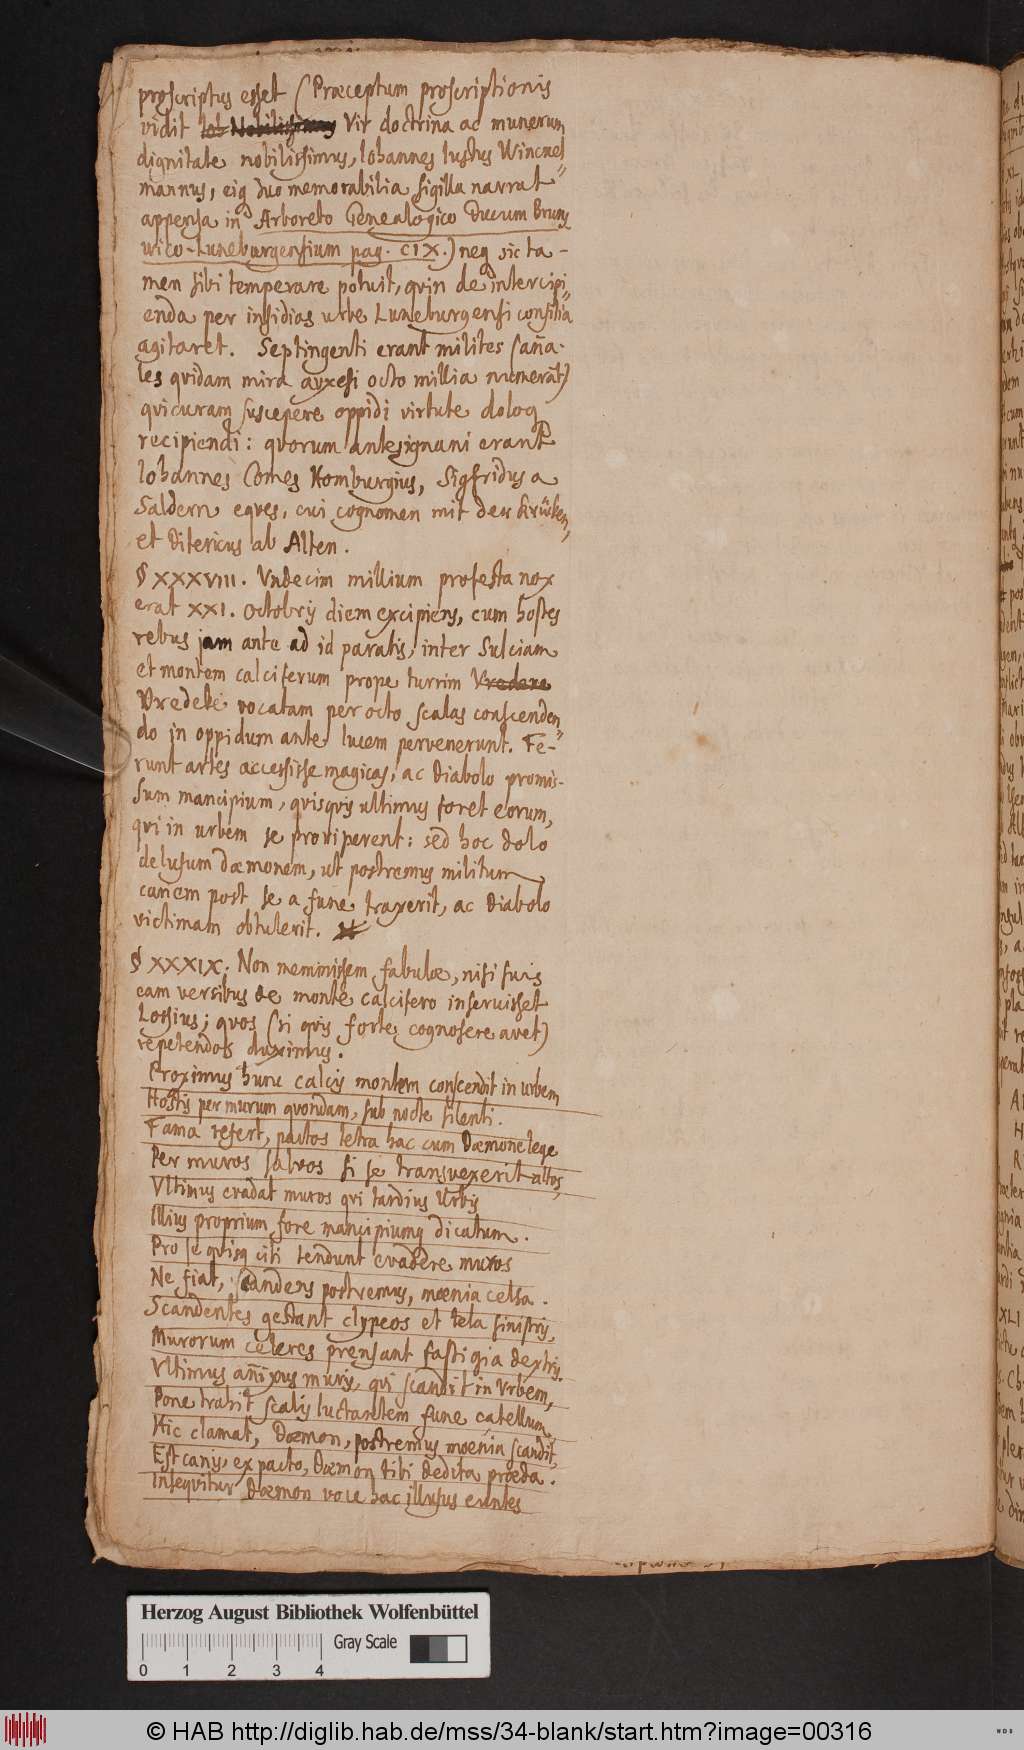 proscriptus esset (Præceptum proscriptionis
vidit Ioh Nobilissimus Vir doctrina ac munerum
dignitate nobilissimus, Iohannes Iustus Winckel=
mannus, eiq duo memorabilia sigilla narrat
appensa in Arboreto Genealogico Ducum Bruns
vico-Luneburgensium pag. CIX.) neq sic ta-
men sibi temperare potuit, quin de intercipi=
enda per insidias urbe Luneburgensi consilia
agitaret. Septingenti erant milites (
les quidam mira auxesi octo millia numerāt)
qui curam suscepere oppidi virtute doloq
recipiendi: quorum antesignani erant
Iohannes Comes Homburgius, Sigfridus a
Saldern eques, cui cognomen mit der Krücken,
et Ditericus ab Alten.
§ XXXVIII. Vndecim millium profesta nox
erat XXI. Octobris diem excipiens, cum hostes
rebus jam ante ad id paratis, inter Sulciam
et montem calciferum prope turrim Vredere
Vredeke vocatam per octo scalas conscenden=
do in oppidum ante lucem pervenerunt. Fe-
runt artes accessisse magicas, ac Diabolo promis-
sum mancipium, quisquis ultimus foret eorum,
qui in urbem se proriperent: sed hoc dolo
delusum dæmonem, ut postremus militum
canem post se a fune traxerit, ac Diabolo
victimam obtulerit.
§ XXXIX. Non meminissem fabulæ, nisi suis
eam versibus de monte calcifero inseruisset
Lossius; quos (si quis forte cognoscere avet)
repetendos duximus.
Proximus hunc calcis montem conscendit in urbem
Hostis per murum quondam, sub nocte silenti.
Fama refert, pactos tetra hac cum Dæmone lege
Per muros salvos si se transvexerit altos,
Vltimus evadat muros qui tardius Urbis
Illius proprium fore mancipiumq dicatum.
Pro se quisq citi tendunt evadere muros
Ne fiat, scandens postremus, mœnia celsa.
Scandentes gestant clypeos et tela sinistris,
Murorum celeres prensant fastigia dextris.
Vltimus annixus muris, qui scandit in Vrbem,
Pone trahit scalis luctantem fune catellum,
Hic clamat, Dæmon, postremus moenia scandit,
Est canis, ex pacto, Dæmon tibi dedita præda.
Insequitur Dæmon voce hac illusus euntes
Herzog August Bibliothek Wolfenbüttel
Gray Scale
0 1 2 3 4
© HAB http://diglib.hab.de/mss/34-blank/start.htm?image=00316
WDB